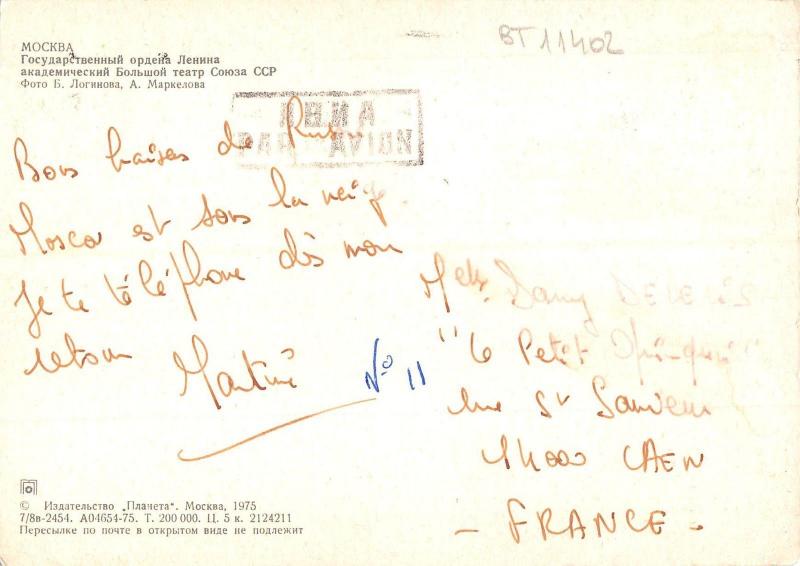 BT 11402
МОСКВА
Государственный ордена Ленина
академический Большой театр Союза ССР
Фото Б. Логинова, А. Маркелова
АВИА
PAR AVION
Bons baisers de
Moscou est sous la neige.
Je te téléphone dès mon
retour
Martine
N° 11
Melle Dany
"Le Petit
rue St Sauveur
14000 CAEN
- FRANCE -
© Издательство „Планета". Москва, 1975
7/8в-2454. А04654-75. Т. 200 000. Ц. 5 к. 2124211
Пересылке по почте в открытом виде не подлежит